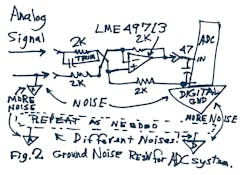 Analog
Signal
LME49713
2K
2K
TRIM
47
ADC
IN
2K
2K
DIGITAL
GND
MORE
NOISE
NOISE
MORE NOISE
REPEAT AS NEEDED
Different Noises.
Fig. 2 Ground Noise for ADC system.